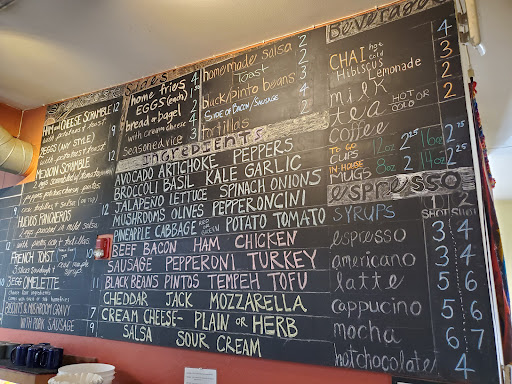 SCRAMBLE 12
HAM and CHEESE SCRAMBLE
with potatoes & toast
EGGS (ANY STYLE)
with potatoes & toast
MEXICAN SCRAMBLE
HUEVOS RANCHEROS
FRENCH TOAST
3 slices
OMELETTE
BISCUITS & MUSHROOM GRAVY
WITH PORK SAUSAGE
12
9
12
10
7
9
Sides
home fries 4
EGGS (each)
bread or bagel
with cream cheese 4
Seasoned rice 3
homemade salsa 2
Toast 2
black/pinto beans 3
SIDE OF BACON/SAUSAGE 4
tortillas 2
Ingredients
AVOCADO ARTICHOKE PEPPERS
BROCCOLI BASIL KALE GARLIC
JALAPENO LETTUCE SPINACH ONIONS
MUSHROOMS OLIVES PEPPERONCINI
PINEAPPLE CABBAGE RED GREEN POTATO TOMATO
BEEF BACON HAM CHICKEN
SAUSAGE PEPPERONI TURKEY
BLACK BEANS PINTOS TEMPEH TOFU
CHEDDAR JACK MOZZARELLA
CREAM CHEESE- PLAIN OR HERB
SALSA SOUR CREAM
Beverages
CHAI hot cold 4
HIBISCUS Lemonade 3
milk 2
tea HOT OR COLD
coffee
TO GO CUPS 12oz 2.25 16oz 2.75
IN HOUSE MUGS 8oz 2.25 14oz 2.75
espresso
SYRUPS
SHOT
espresso 3 4
americano 3 4
latte 4 5
cappucino 5 6
mocha 6 7
hot chocolate 4